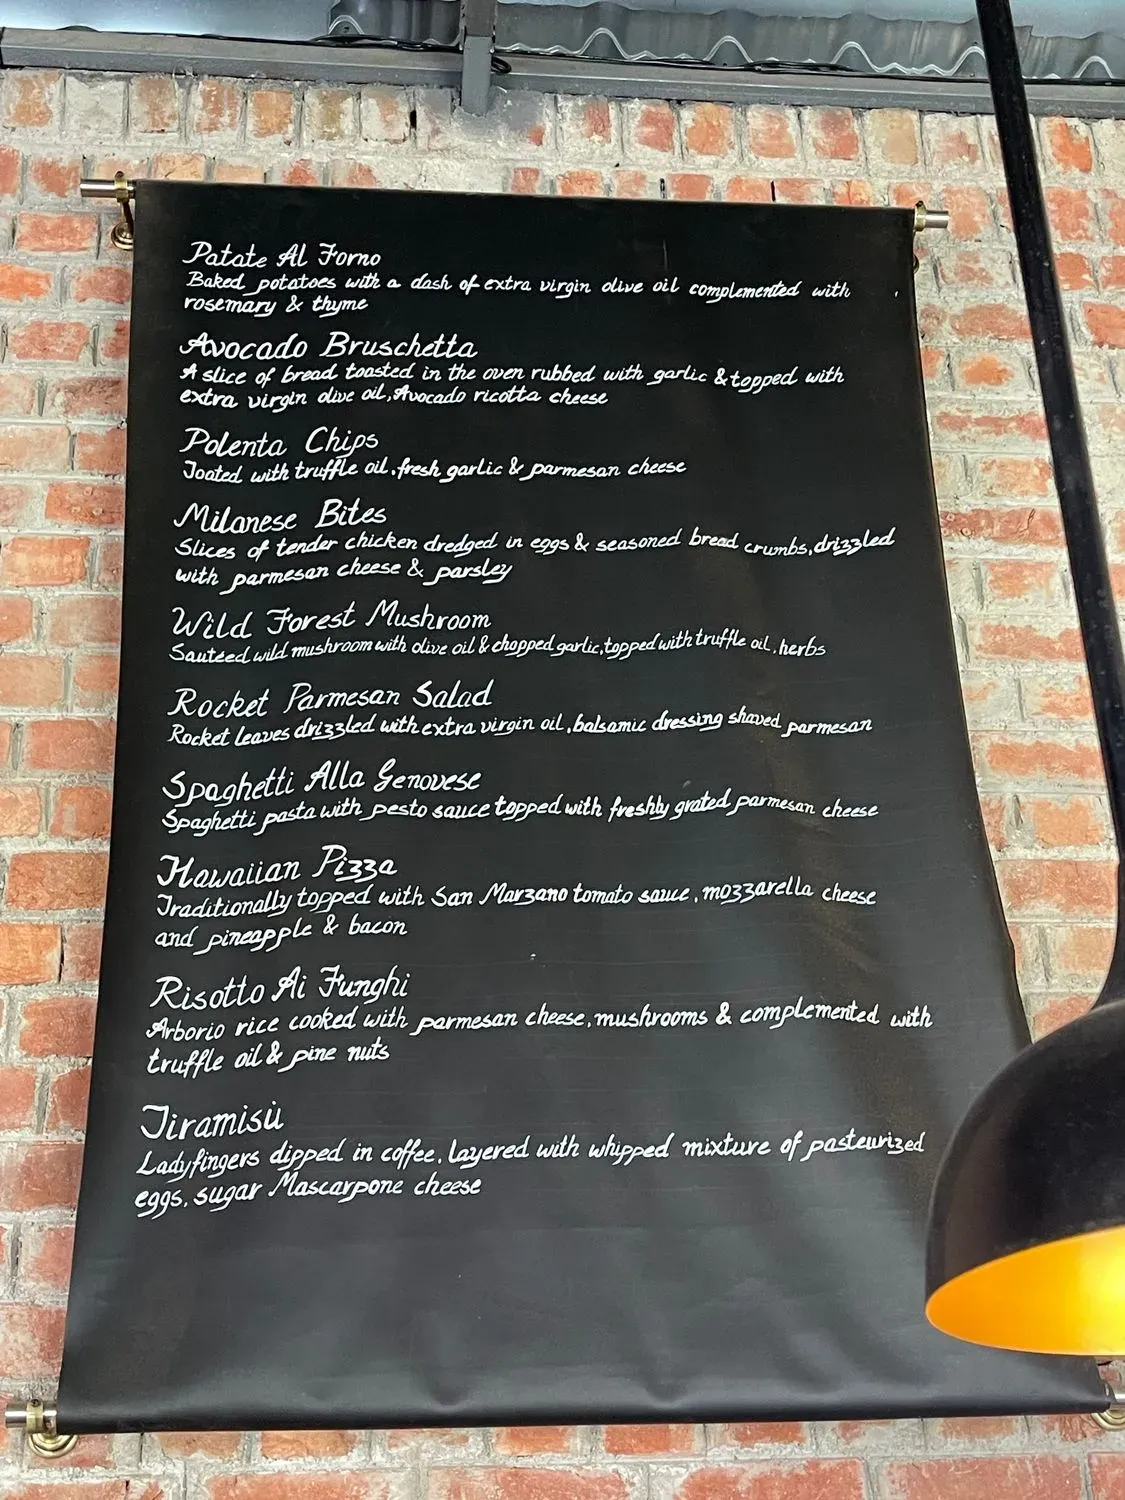 Patate Al Forno
Baked potatoes with a dash of extra virgin olive oil complemented with
rosemary & thyme
Avocado Bruschetta
A slice of bread toasted in the oven rubbed with garlic & topped with
extra virgin olive oil, Avocado ricotta cheese
Polenta Chips
Toated with truffle oil, fresh garlic & parmesan cheese
Milanese Bites
Slices of tender chicken dredged in eggs & seasoned bread crumbs, drizzled
with parmesan cheese & parsley
Wild Forest Mushroom
Sauteed wild mushroom with olive oil & chopped garlic, topped with truffle oil, herbs
Rocket Parmesan Salad
Rocket leaves drizzled with extra virgin oil, balsamic dressing shaved parmesan
Spaghetti Alla Genovese
Spaghetti pasta with pesto sauce topped with freshly grated parmesan cheese
Hawaiian Pizza
Traditionally topped with San Marzano tomato sauce, mozzarella cheese
and pineapple & bacon
Risotto Ai Funghi
Arborio rice cooked with parmesan cheese, mushrooms & complemented with
truffle oil & pine nuts
Tiramisù
Ladyfingers dipped in coffee, layered with whipped mixture of pasteurized
eggs, sugar Mascarpone cheese